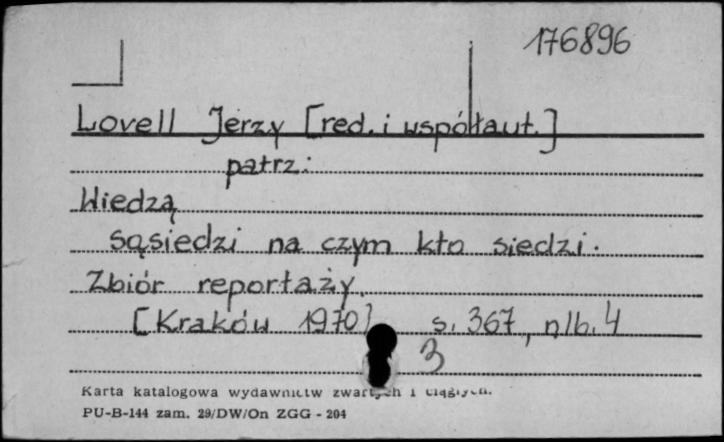 176896
Lovell Jerzy [red. i współaut.]
patrz:
Wiedzą
sąsiedzi na czym kto siedzi.
Zbiór reportaży.
[Kraków 1970] s. 367, nlb. 4
3
Karta katalogowa wydawnictw zwartych i ciągłych.
PU-B-144 zam. 29/DW/On ZGG - 204